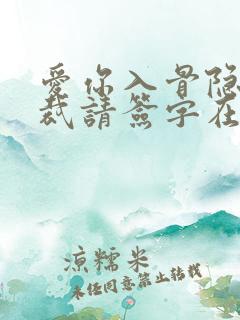 爱你入骨隐
裁請簽字在
凉糯米
未经同意禁止转载